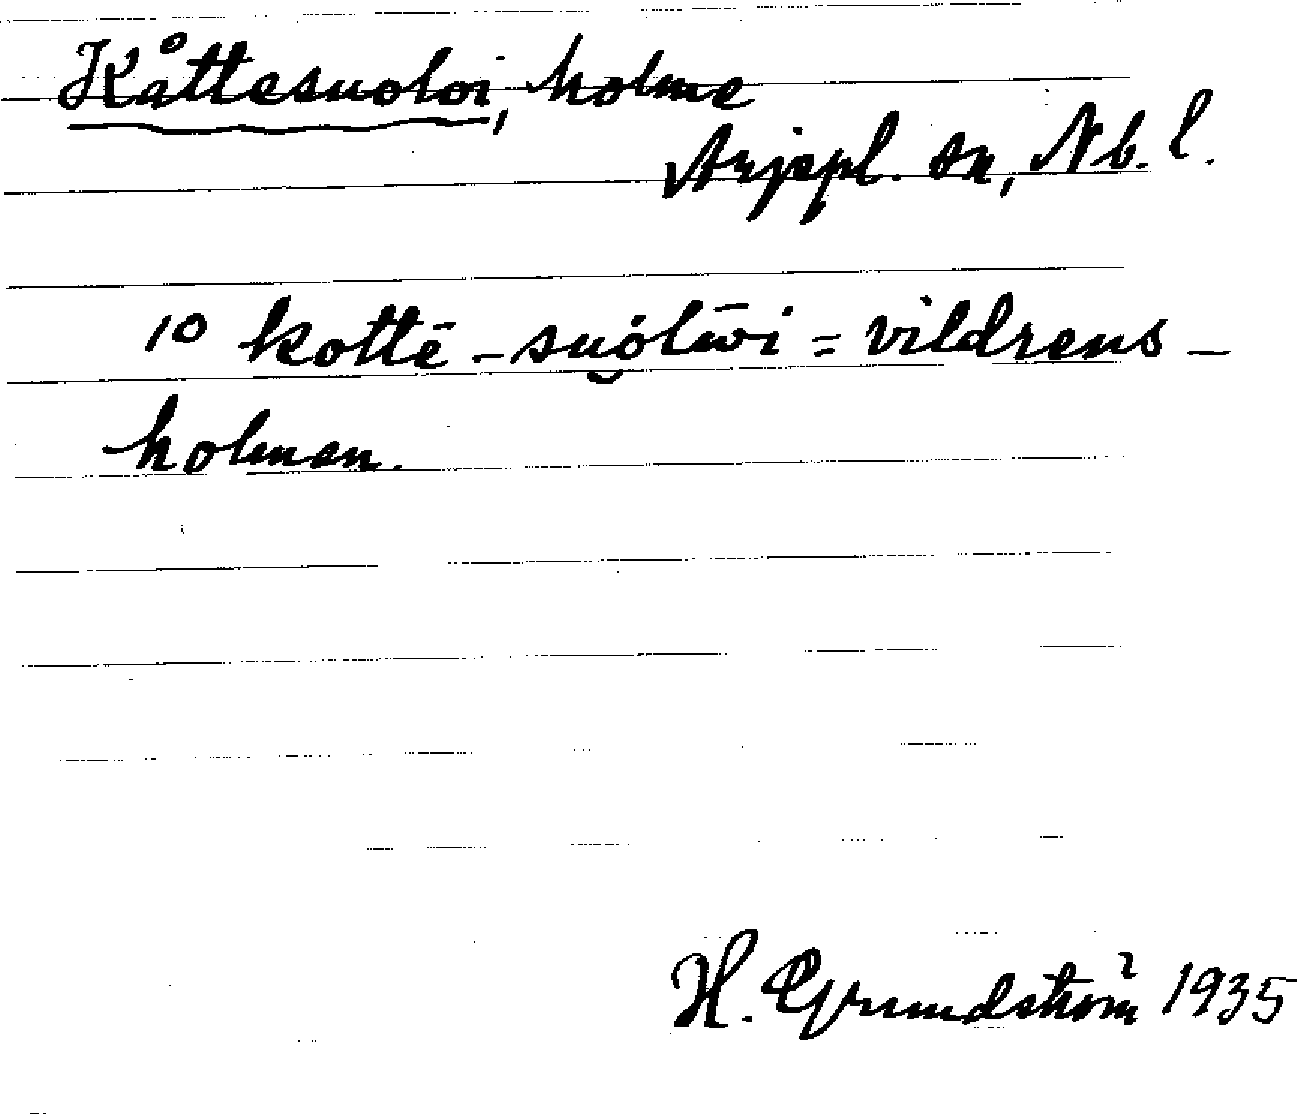 Kåttesuoloi, holme
Arjepl. sn, Nb. l.
10 kottē - suo̯lūi = vildrens-
holmen.
H. Grundström 1935